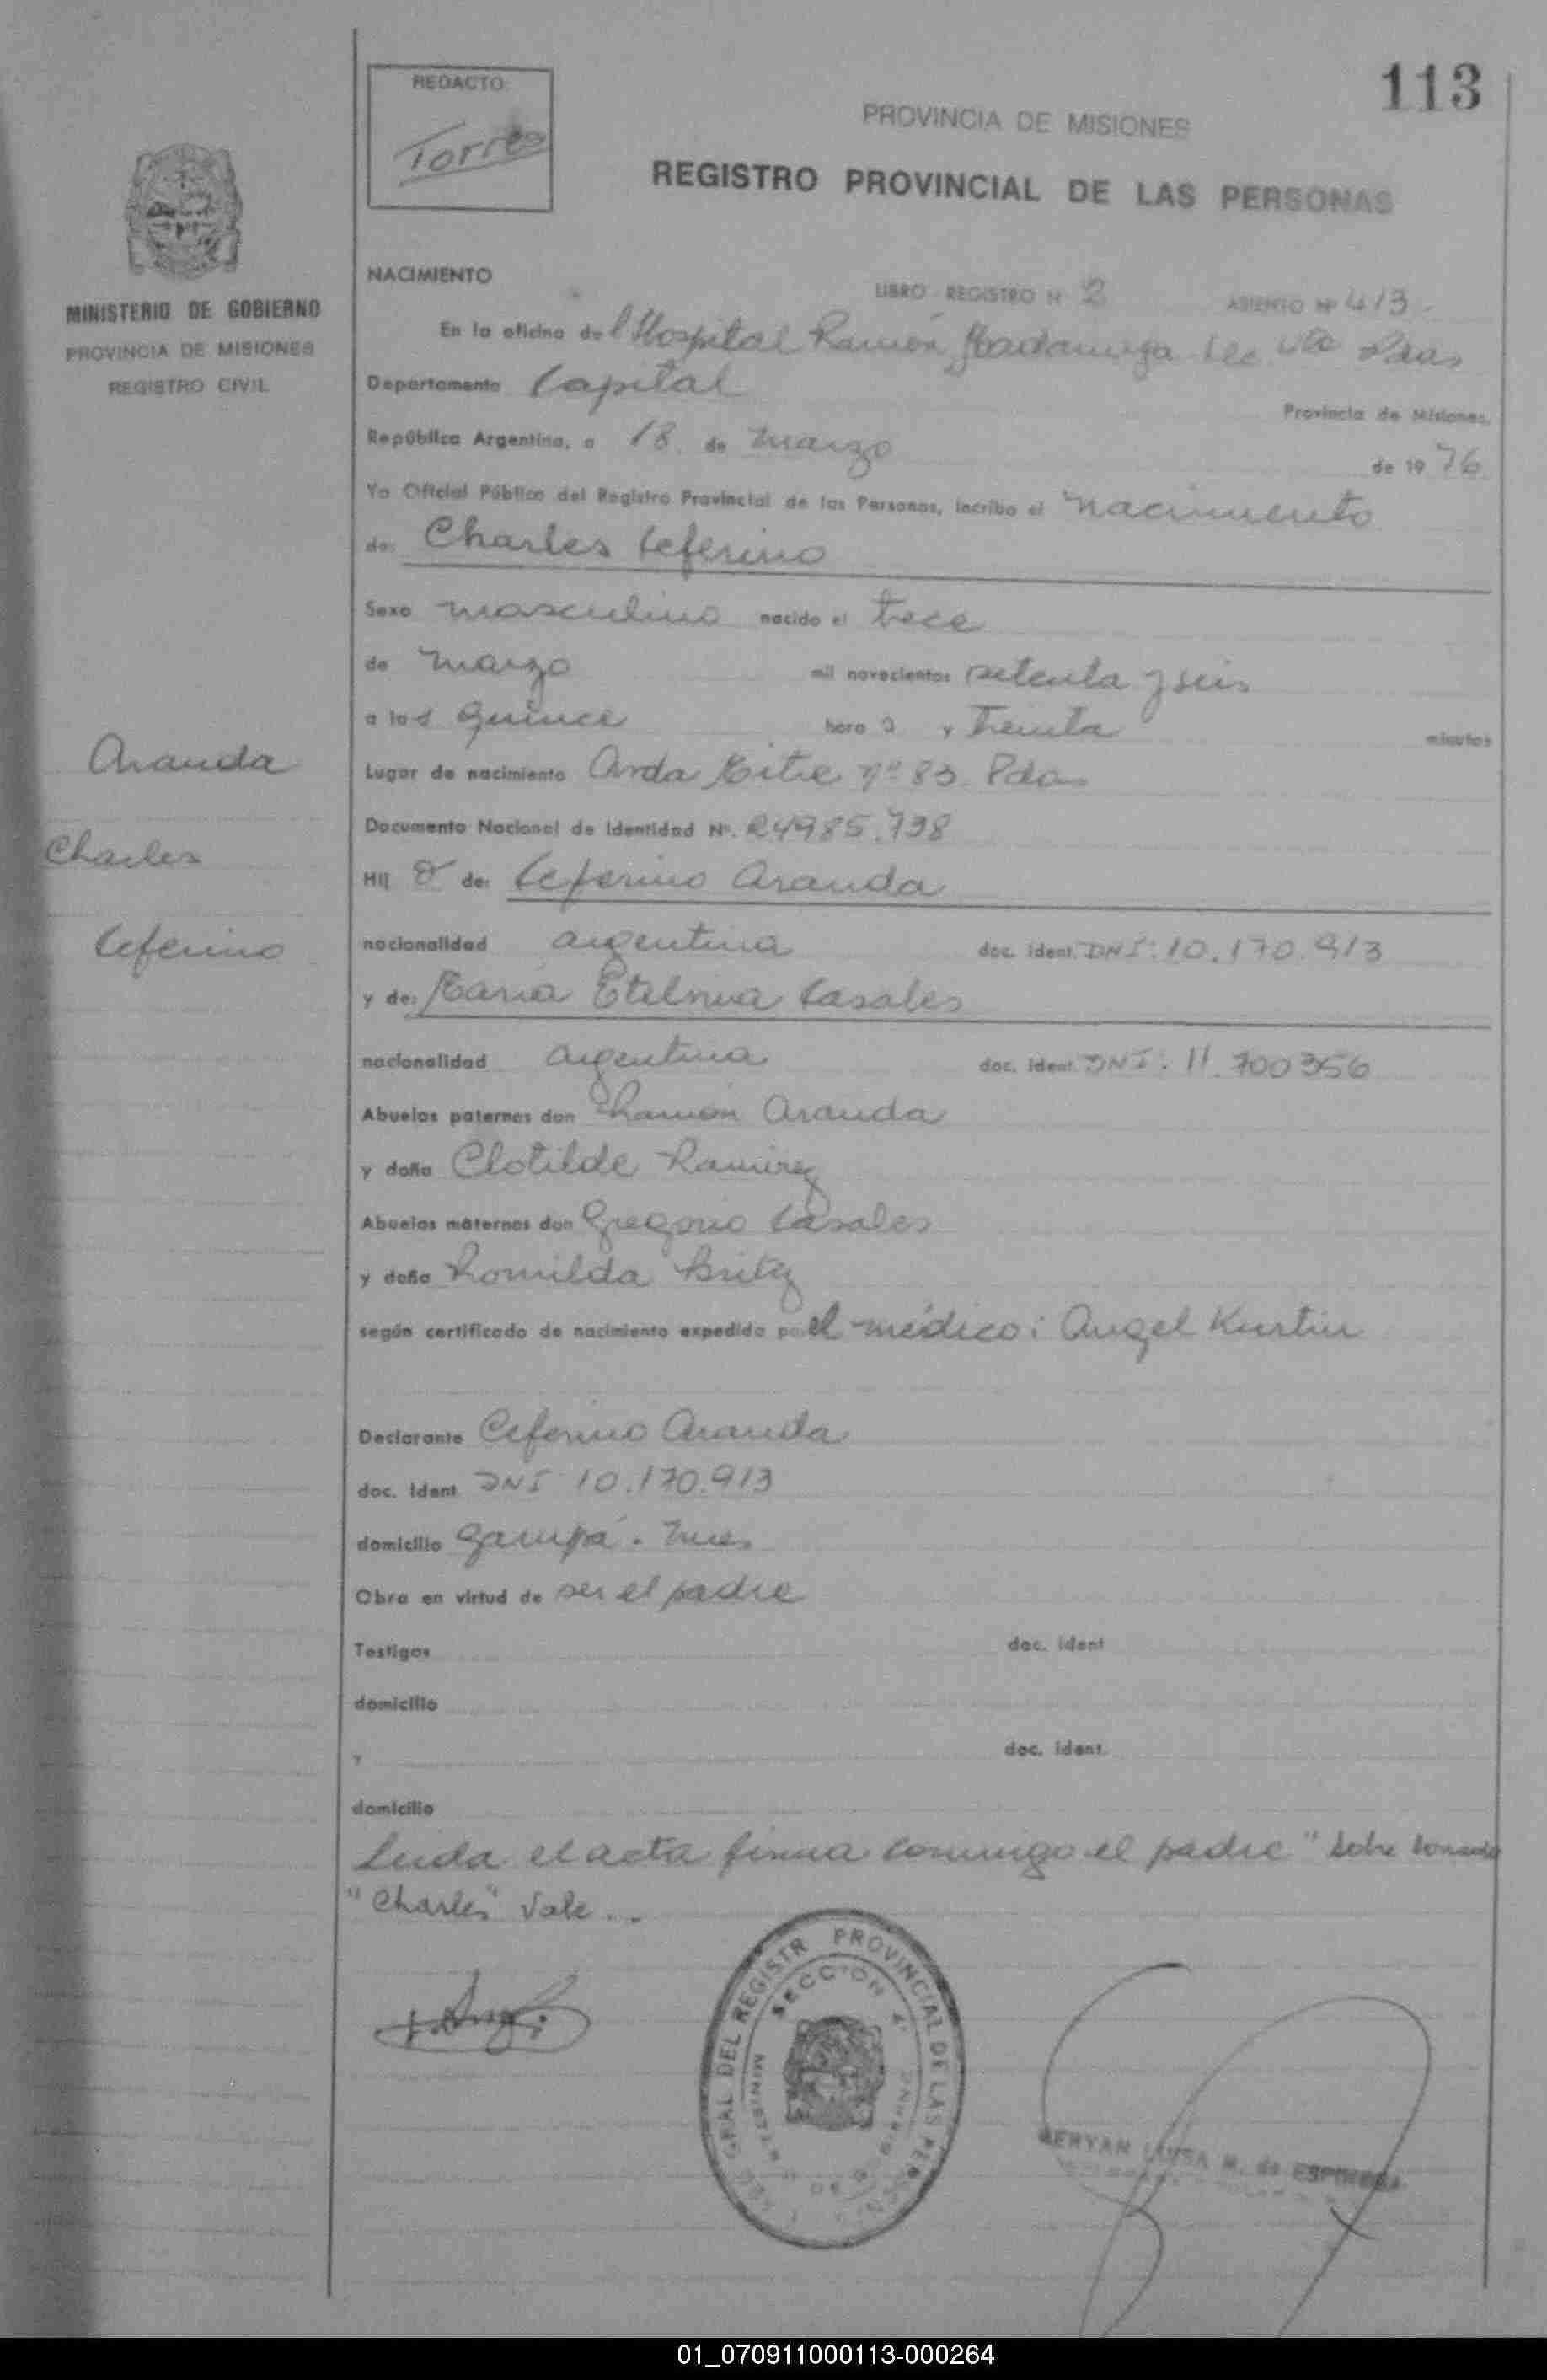 113
REDACTO:
Torres
PROVINCIA DE MISIONES
REGISTRO PROVINCIAL DE LAS PERSONAS
MINISTERIO DE GOBIERNO
PROVINCIA DE MISIONES
REGISTRO CIVIL
NACIMIENTO
LIBRO REGISTRO Nº 2 ASIENTO Nº 413.-
En la oficina del Hospital Ramón Madariaga Sec 4ta Pdas
Departamento Capital
Provincia de Misiones,
República Argentina, a 18 de marzo de 1976
Yo Oficial Público del Registro Provincial de las Personas, incribo el nacimiento
de: Charles Ceferino
Sexo masculino nacido el trece
de marzo mil novecientos setenta y seis
a las quince hora s y treinta minutos
Aranda
Lugar de nacimiento Avda Mitre nº 83 Pdas
Documento Nacional de Identidad Nº. 24985.738
Charles
Hij o de: Ceferino Aranda
Ceferino
nacionalidad argentina doc. ident. DNI: 10.170.913
y de: María Etelvina Casales
nacionalidad argentina doc. ident. DNI: 11.700356
Abuelos paternos don Ramón Aranda
y doña Clotilde Ramirez
Abuelos maternos don Gregorio Casales
y doña Romilda Britez
según certificado de nacimiento expedido por el médico: Angel Kurtin
Declarante Ceferino Aranda
doc. ident DNI 10.170.913
domicilio Garupá. Mnes
Obra en virtud de ser el padre
Testigos doc. ident
domicilio
y doc. ident.
domicilio
Leida el acta firma conmigo el padre "Sobre borrado
"Charles" Vale...
GRAL DEL REGISTR PROVINCIAL DE LAS PER
SECCION 4ª
MINISTER
ESPINOSA
01_070911000113-000264